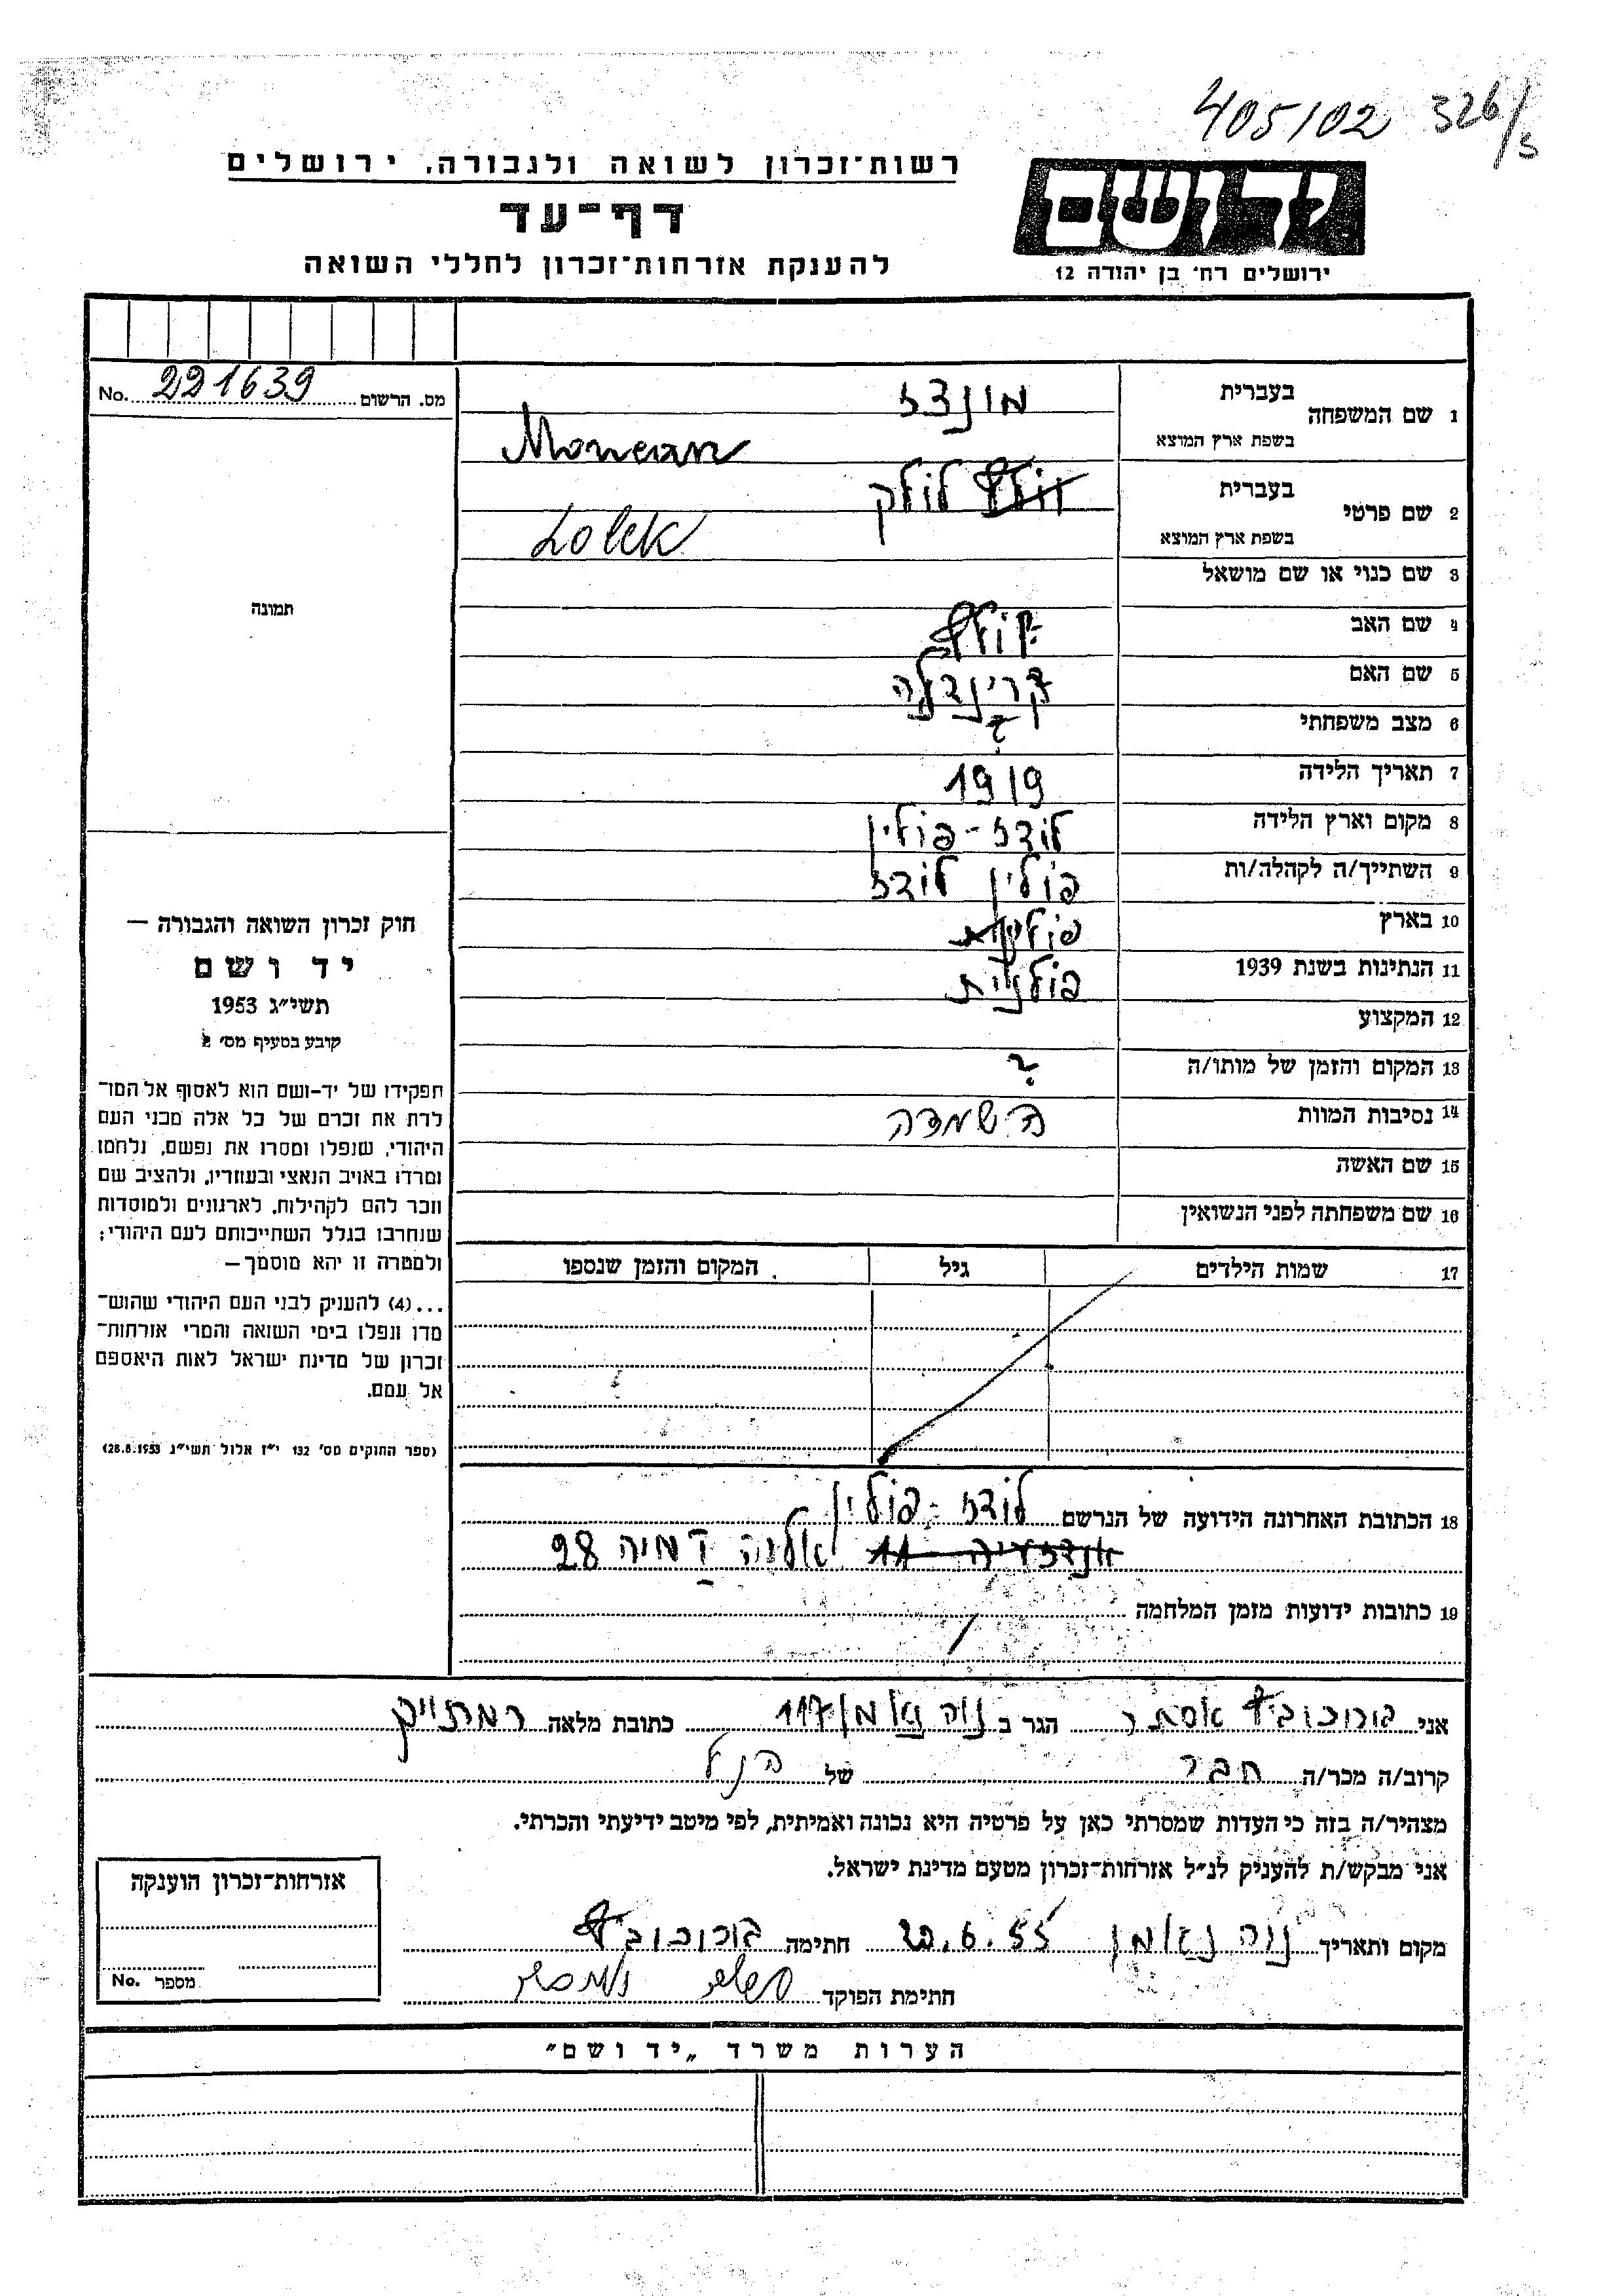 405/02 326/5
רשות־זכרון לשואה ולגבורה, ירושלים
יד ושם
דף־עד
להענקת אזרחות־זכרון לחללי השואה
ירושלים רח' בן יהודה 12
מס. הרשום 221639 No.
1 שם המשפחה
בעברית
בשפת ארץ המוצא
2 שם פרטי
בעברית לולק
בשפת ארץ המוצא Lolek
3 שם כנוי או שם מושאל
4 שם האב
5 שם האם
6 מצב משפחתי ?
7 תאריך הלידה 1919
8 מקום וארץ הלידה לודז - פולין
9 השתייך/ה לקהלה/ות פולין לודז
10 בארץ
11 הנתינות בשנת 1939 פולנית
12 המקצוע
13 המקום והזמן של מותו/ה ?
14 נסיבות המוות השמדה
15 שם האשה
16 שם משפחתה לפני הנשואין
17 שמות הילדים גיל המקום והזמן שנספו
18 הכתובת האחרונה הידועה של הנרשם לודז - פולין
28
19 כתובות ידועות מזמן המלחמה
תמונה
חוק זכרון השואה והגבורה —
יד ושם
תשי״ג 1953
קובע בסעיף מס׳ 2
תפקידו של יד-ושם הוא לאסוף אל המו־
לדת את זכרם של כל אלה מבני העם
היהודי, שנפלו ומסרו את נפשם, נלחמו
ומרדו באויב הנאצי ובעוזריו, ולהציב שם
וזכר להם לקהילות, לארגונים ולמוסדות
שנחרבו בגלל השתייכותם לעם היהודי;
ולמטרה זו יהא מוסמך —
...(4) להעניק לבני העם היהודי שהוש־
מדו ונפלו בימי השואה והמרי אזרחות־
זכרון של מדינת ישראל לאות היאספם
אל עמם.
(ספר החוקים מס׳ 132 י״ז אלול תשי״ג 28.8.1953)
אני בורוכוביץ אסתר הגר ב נוה נאמן 117 כתובת מלאה
קרוב/ה מכר/ה חבר של הנ״ל
מצהיר/ה בזה כי העדות שמסרתי כאן על פרטיה היא נכונה ואמיתית, לפי מיטב ידיעתי והכרתי.
אני מבקש/ת להעניק לנ״ל אזרחות־זכרון מטעם מדינת ישראל.
מקום ותאריך נוה נאמן 20.6.55 חתימה בורוכוביץ
חתימת הפוקד
אזרחות־זכרון הוענקה
מספר No.
הערות משרד „יד ושם״